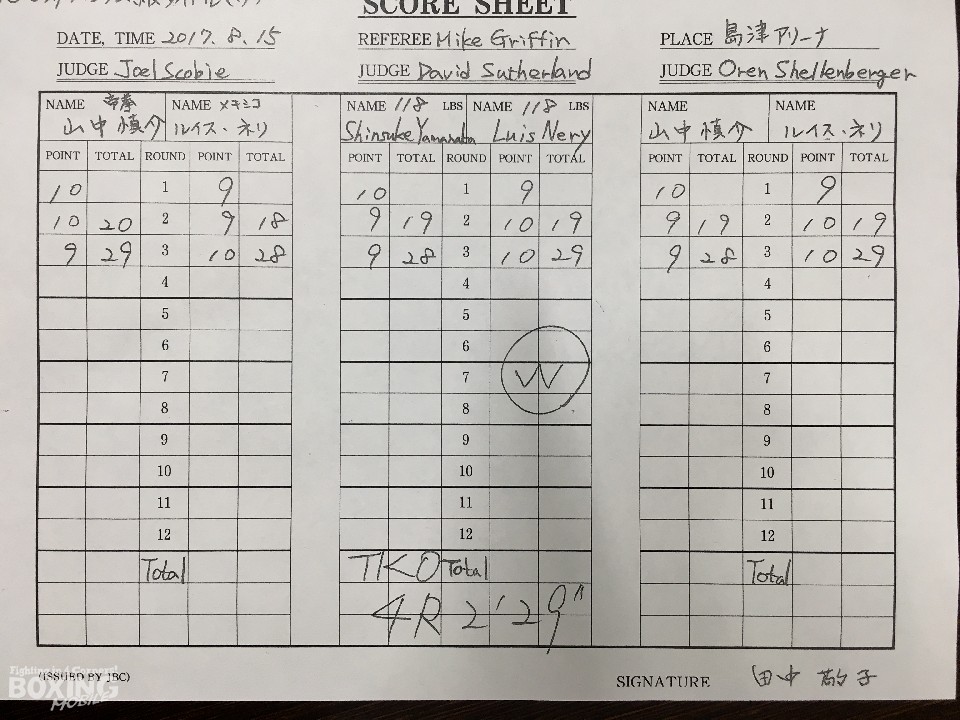 SCORE SHEET
DATE, TIME 2017.8.15 REFEREE Mike Griffin PLACE 島津アリーナ
JUDGE Joel Scobie JUDGE David Sutherland JUDGE Oren Shellenberger
NAME 帝拳 NAME メキシコ NAME 118 LBS NAME 118 LBS NAME NAME
山中慎介 ルイス・ネリ Shinsuke Yamanaka Luis Nery 山中慎介 ルイス・ネリ
POINT TOTAL ROUND POINT TOTAL POINT TOTAL ROUND POINT TOTAL POINT TOTAL ROUND POINT TOTAL
10 1 9 10 1 9 10 1 9
10 20 2 9 18 9 19 2 10 19 9 19 2 10 19
9 29 3 10 28 9 28 3 10 29 9 28 3 10 29
4 4 4
5 5 5
6 6 6
7 7 W 7
8 8 8
9 9 9
10 10 10
11 11 11
12 12 12
Total TKO Total Total
4R 2'29"
(ISSUED BY JBC) SIGNATURE 田中
Fighting in 4 Corners!
BOXING
MOBILE